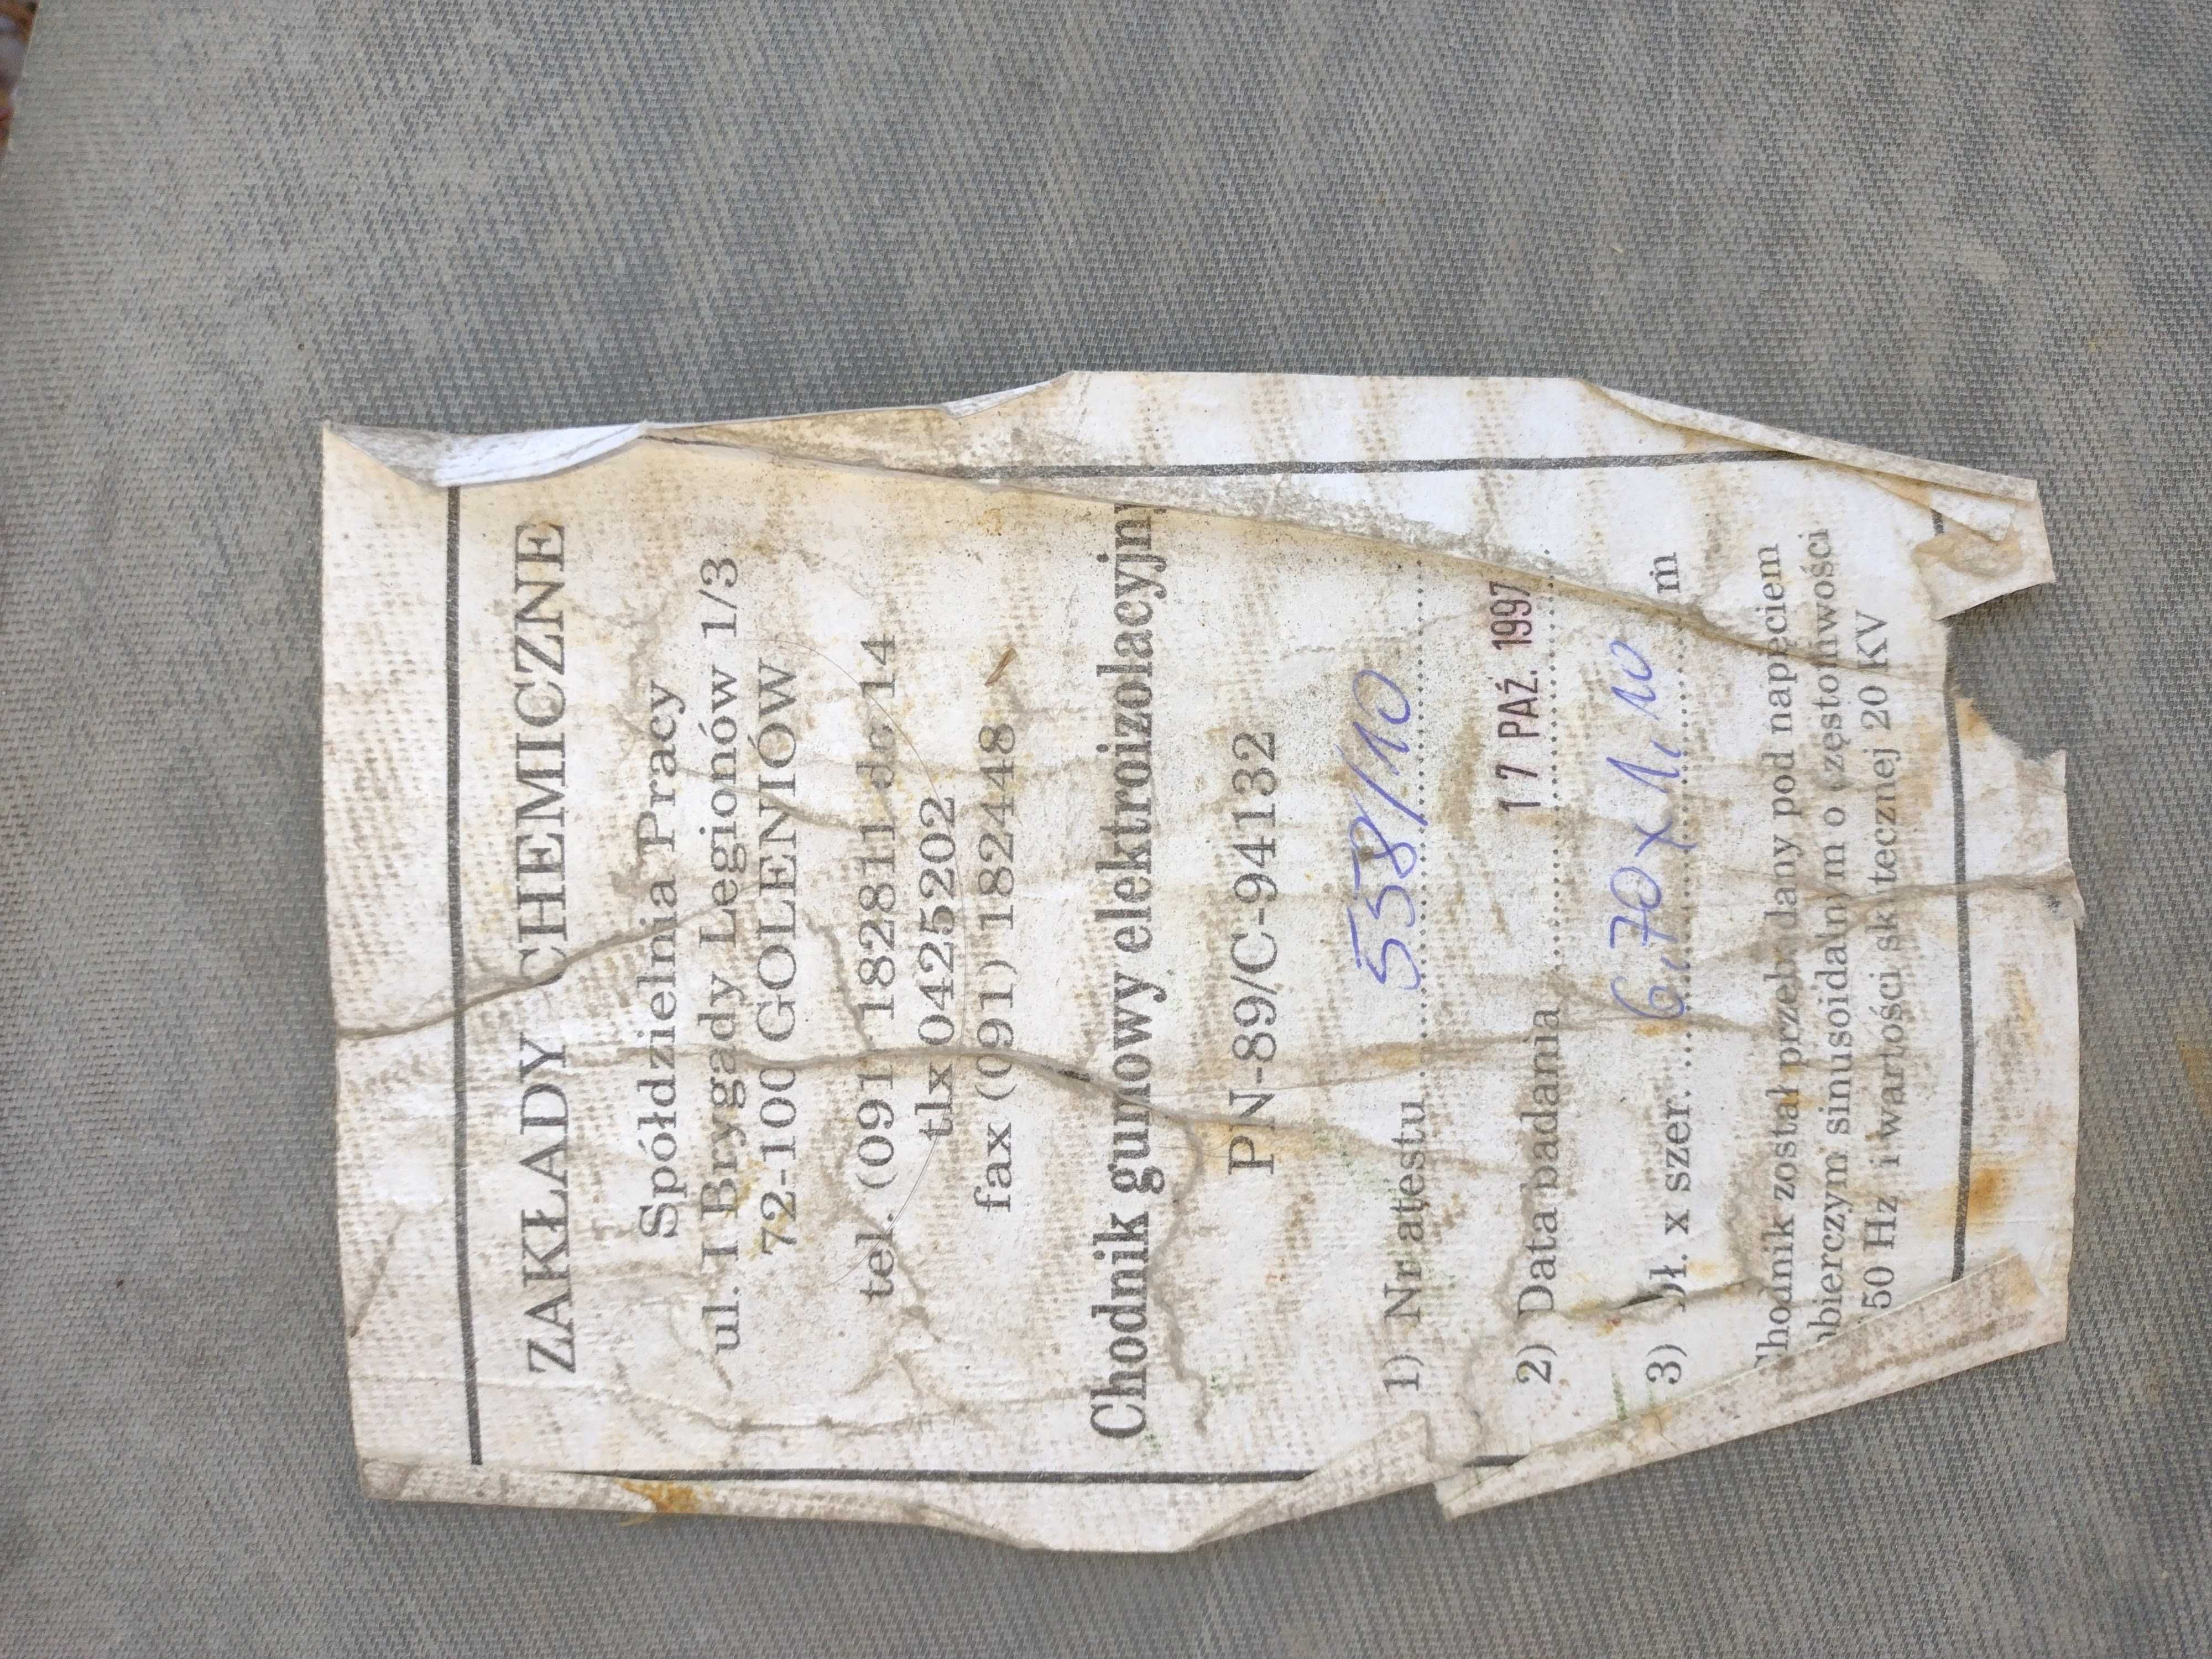 ZAKŁADY CHEMICZNE
Spółdzielnia Pracy
ul. I Brygady Legionów 1/3
72-100 GOLENIÓW
tel. (091 182811 do 14
tlx 0425202
fax (091) 182448
Chodnik gumowy elektroizolacyjny
PN-89/C-94132
1) Nr atestu 558/10
2) Data badania 17 PAŹ. 1997
3) dł. x szer. 6,70 x 1,10 m
Chodnik został przebadany pod napięciem
probierczym sinusoidalnym o częstotliwości
50 Hz i wartości skutecznej 20 KV